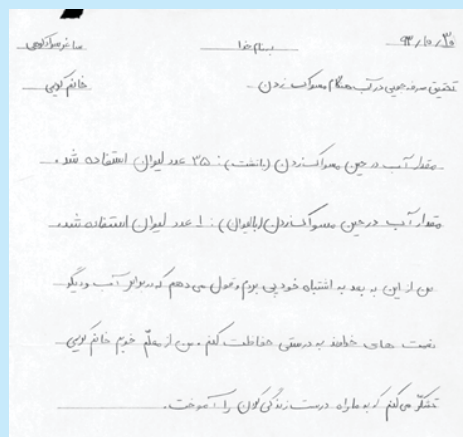 ۹۳/۱۰/۳۰ بنام خدا ساغر سوادکوهی
تحقیق صرفه جویی در آب هنگام مسواک زدن - خانم کویی
مقدار آب در حین مسواک زدن (با شت): ۳۵ عدد لیوان استفاده شد.
مقدار آب در حین مسواک زدن (با لیوان): ۱ عدد لیوان استفاده شد.
من از این به بعد به اشتباه خود پی بردم و قول می دهم که در برابر آب و دیگر
نعمت های خداوند به درستی حفاظت کنم. من از معلّم خوبم خانم کویی
تشکّر می کنم که به ما راه درست زندگی کردن را آموخت.